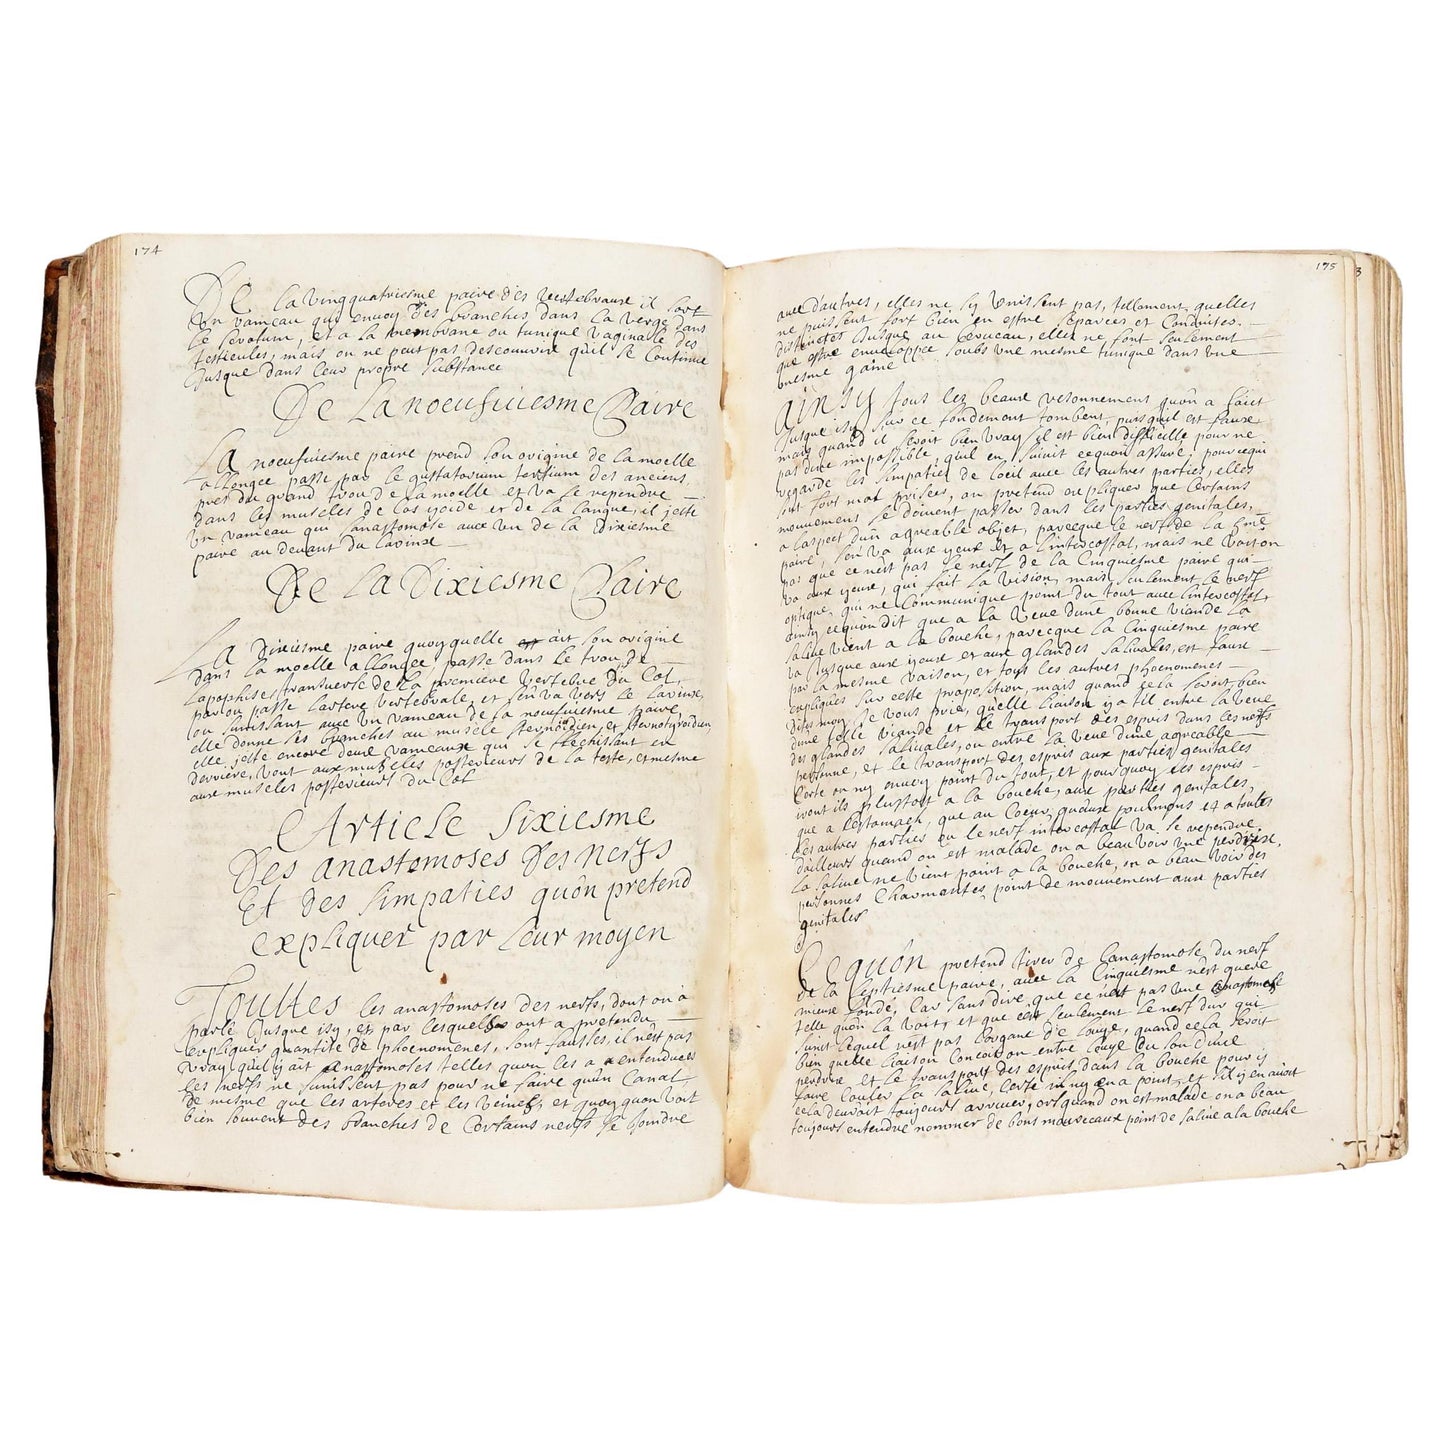 174
De la vingquatriesme paire des vertebraux il sort
un rameau qui envoy des branches dans la verge dans
le scrotum, et a la membrane ou tunique vaginale des
testicules, mais on ne peut pas descouvrir qu'il se continue
jusque dans leur propre substance
De la noeufuiesme Paire
La noeufuiesme paire prend son origine de la moelle
allongee passe par le gustatorium tertium des anciens,
pres du grand trou de la moelle et va se rependre
dans les muscles de los yoide et de la langue, il jette
un rameau qui anastomose avec un de la dixiesme
paire au devant du larinx
De la Dixiesme Paire
La dixiesme paire quoy quelle ait son origine
dans la moelle allongee, passe dans le trou de
lapophise transverse de la premiere vertebre du Col,
par lou passe lartere vertebrale, et s'en va vers le larinx,
ou s'unissant avec un rameau de la noeufuiesme paire,
elle donne ses branches au muscle sternoidien, et sternotyroidien,
elle jette encore deux rameaux qui se flechissant en
derriere, vont aux muscles posterieurs de la teste, et mesme
aux muscles posterieurs du Col
Article Sixiesme
Des anastomoses Des nerfs
Et des simpaties qu'on pretend
expliquer par leur moyen
Touttes les anastomoses des nerfs, dont on a
parlé jusque isy, et par lesquelles ont a pretendu
expliquer quantité de phoenomenes, sont fausses, il n'est pas
vray qu'il y ait anastomoses telles qu'on les a entendues
les nerfs ne s'unissent pas pour ne faire qu'un Canal
de mesme que les arteres et les veines, et quoy quon voit
bien souvent des branches de Certains nerfs se joindre
175
avec d'autres, elles ne s'y unissent pas, tellement quelles
ne puissent fort bien en estre separées et Conduites
distinctes jusque au Cerveau, elles ne sont seulement
que estre enveloppee soubs une mesme tunique dans une
mesme gaine
Ainsy tous les beaux resonnement qu'on a faict
jusque isy sur ce fondement tombent, puisquil est faux
mais quand il seroit bien vray s'il est bien difficille pour ne
pas dire impossible, qu'il en suivit ce quon assure, pour ce qui
regarde les simpaties de loeil avec les autres parties, elles
sont fort mal prises, on pretend expliquer que Certains
mouvemens se doivent passer dans les parties genitales,
a laspect d'un agreable objet, parceque le nerf de la 5me
paire, s'en va aux yeux et a l'intercostal, mais ne voit on
pas que ce nest pas le nerf de la Cinquiesme paire qui
va aux yeux, qui fait la vision, mais seulement le nerf
optique, qui ne Communique point du tout avec l'intercostal,
ainsy ce quon dit que a la veue d'une bonne viande la
salive vient a la bouche, parceque la Cinquiesme paire
va jusque aux yeux et aux glandes salivales, est faux
par la mesme raison, et tous les autres phoenomenes
expliqués sur cette proposition, mais quand cela seroit bien
dites moy je vous prie, quelle liaison y a t il entre la veue
d'une telle viande et le transport des esprits dans les nerfs
des glandes salivales, ou entre la veue d'une agreable
personne, et le transport des esprits aux parties genitales
Certe on n'y en voy point du tout, et pourquoy les esprits
iront ils plustost a la bouche, aux parties genitales,
que a lestomach, que au Coeur, qu'aux poulmons et a toutes
les autres parties ou le nerf intercostal va se rependre
d'ailleurs quand on est malade on a beau voir une perdrix,
la salive ne vient point a la bouche, on a beau voir des
personnes Charmantes point de mouvement aux parties
genitales
Ce qu'on pretend tirer de l'anastomose du nerf
de la septiesme paire, avec la Cinquiesme n'est guere
mieux fondé, Car sans dire, que ce n'est pas une anastomose
telle qu'on la voit, et que cest seulement le nerf dur qui
s'unit lequel n'est pas l'organe de l'ouye, quand cela seroit
bien quelle liaison Concoit on entre l'ouye du son d'une
perdrix et le transport des esprits dans la bouche pour y
faire Couler la salive, Certe il n'y en a point, et s'il y en avoit
cela devroit toujours arriver, or quand on est malade on a beau
toujours entendre nommer de bons morceaux point de salive a la bouche